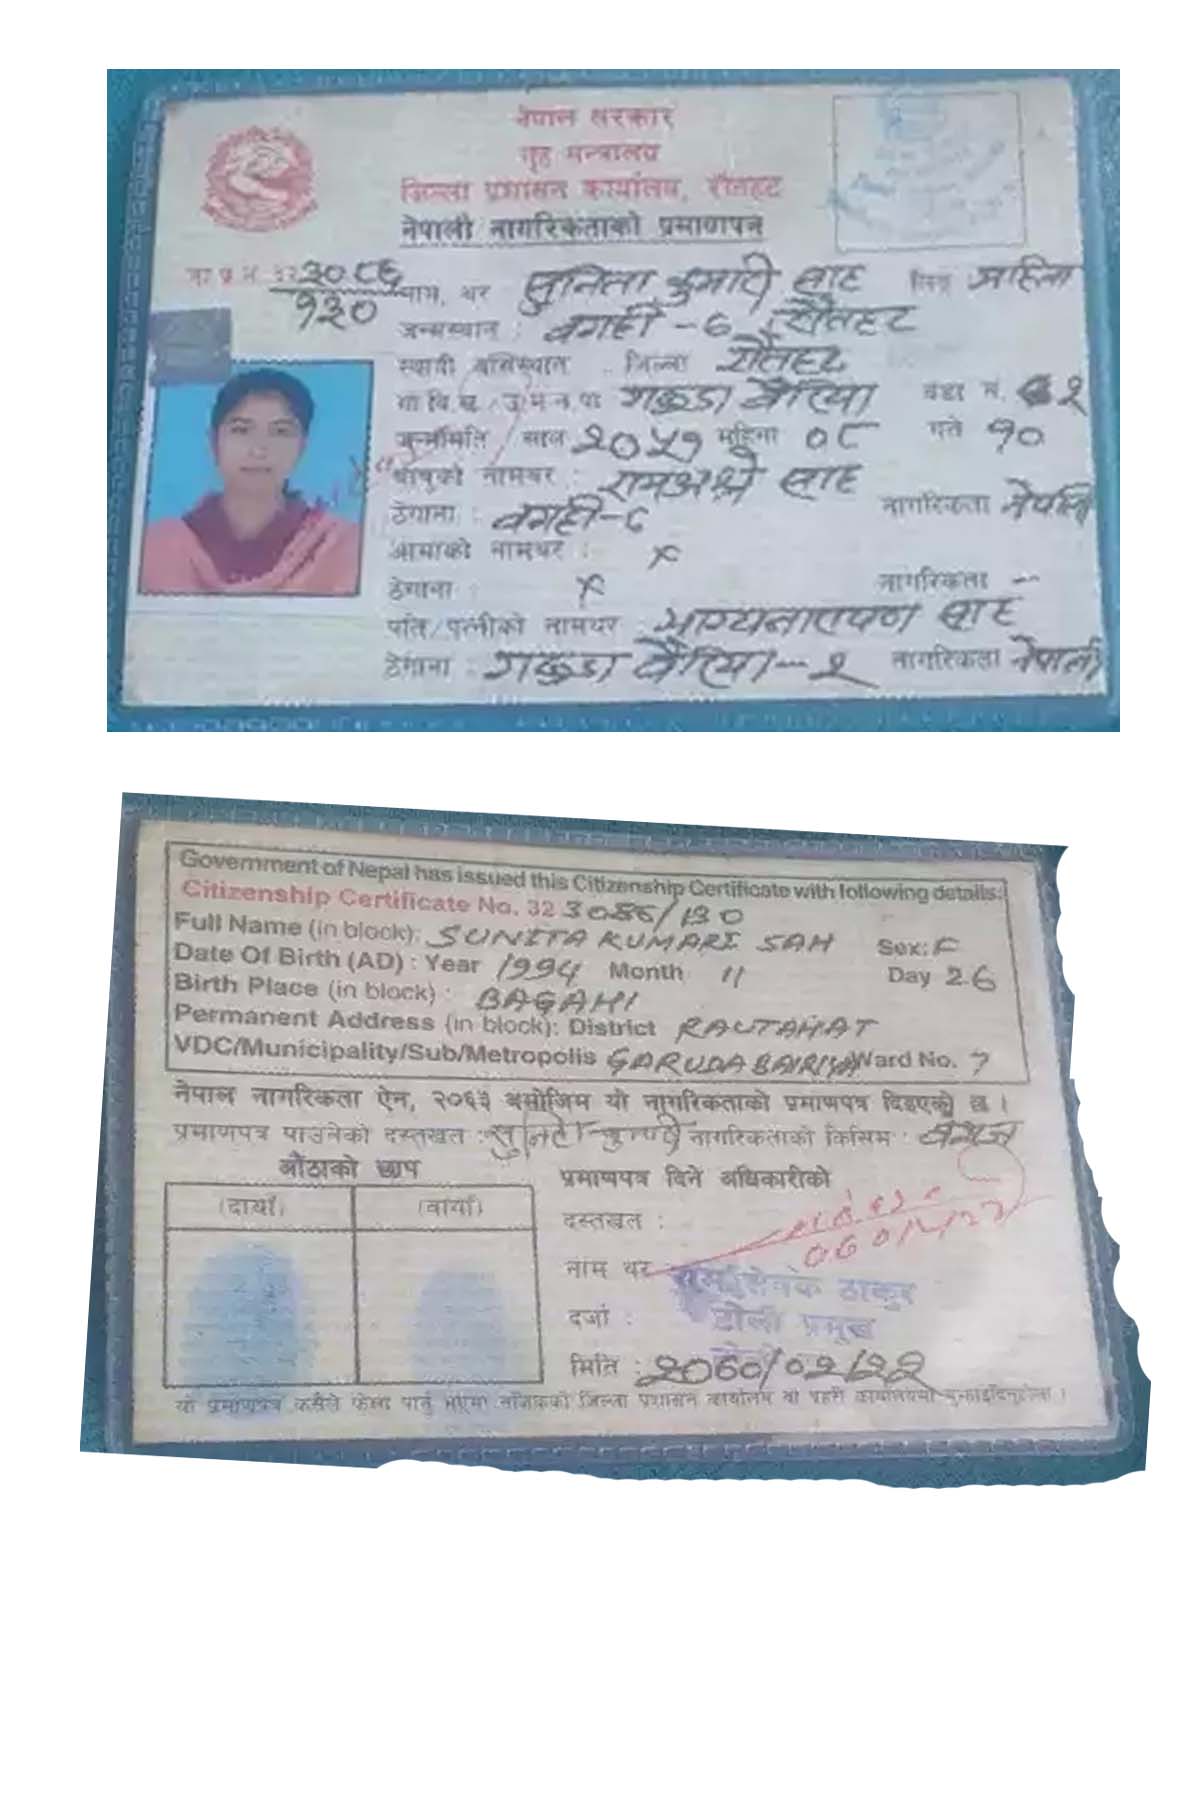 नेपाल सरकार
गृह मन्त्रालय
जिल्ला प्रशासन कार्यालय, रौतहट
नेपाली नागरिकताको प्रमाणपत्र
ना.प्र.नं. 32 3086/130
नाम, थर सुनिता कुमारी साह लिङ्ग महिला
जन्मस्थान : बगही - रौतहट
स्थायी बासस्थान : जिल्ला रौतहट
गा.वि.स./उ.म.न.पा गरुडा बैरिया वडा नं. २
जन्ममिति साल २०५१ महिना ०८ गते १०
बाबुको नामथर : साह
ठेगाना : बगही-८ नागरिकता नेपाली
आमाको नामथर : x
ठेगाना : x नागरिकता --
पति/पत्नीको नामथर : भाग्यनारायण साह
ठेगाना : गरुडा बैरिया--२ नागरिकता नेपाली
Government of Nepal has issued this Citizenship Certificate with following details:
Citizenship Certificate No. 32 3086/130
Full Name (in block): SUNITA KUMARI SAH Sex: F
Date Of Birth (AD) : Year 1994 Month 11 Day 26
Birth Place (in block) : BAGAHI
Permanent Address (in block): District RAUTAHAT
VDC/Municipality/Sub/Metropolis GARUDA BAIRIYA Ward No. 7
नेपाल नागरिकता ऐन, २०६३ बमोजिम यो नागरिकताको प्रमाणपत्र दिइएको छ ।
प्रमाणपत्र पाउनेको दस्तखत : सुनिता कुमारी नागरिकताको किसिम : वंशज
औंठाको छाप
(दायाँ) (बायाँ)
प्रमाणपत्र दिने अधिकारीको
दस्तखत :
नाम थर ठाकुर
दर्जा : टोली प्रमुख
मिति : 2060/02/22
यो प्रमाणपत्र कसैले फेला पार्नु भएमा नजिकको जिल्ला प्रशासन कार्यालय वा प्रहरी कार्यालयमा बुझाइदिनुहोला ।